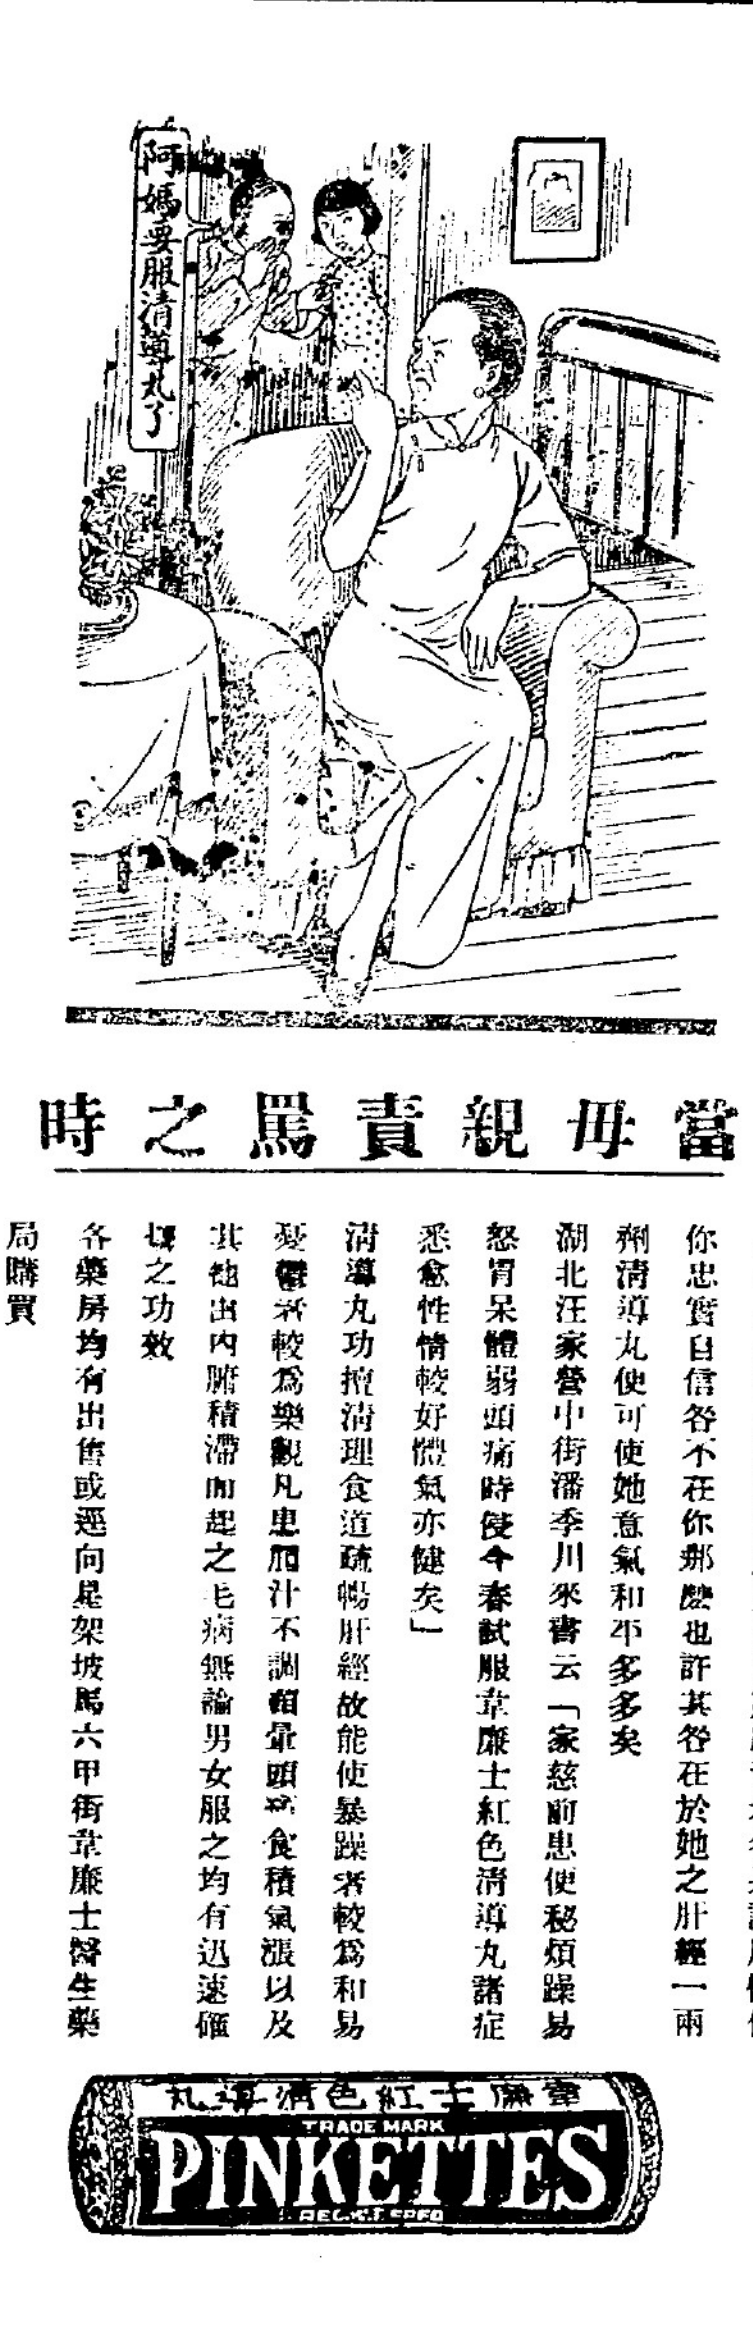 阿媽要服清導丸了
當毋親責罵之時
你忠實自信咎不在你那麼也許其咎在於她之肝經一兩
劑清導丸便可使她意氣和平多多矣
湖北汪家營中街潘季川來書云「家慈前患便秘煩躁易
怒胃呆體弱頭痛時發今春試服韋廉士紅色清導丸諸症
悉愈性情較好體氣亦健矣」
清導丸功擅清理食道疏暢肝經故能使暴躁者較爲和易
憂鬱者較爲樂觀凡患膽汁不調頭暈頭痛食積氣漲以及
其他由內腑積滯而起之毛病無論男女服之均有迅速確
之功效
各藥房均有出售或逕向星架坡馬六甲街韋廉士醫生藥
局購買
韋廉士紅色清導丸
TRADE MARK
PINKETTES
REGISTERED